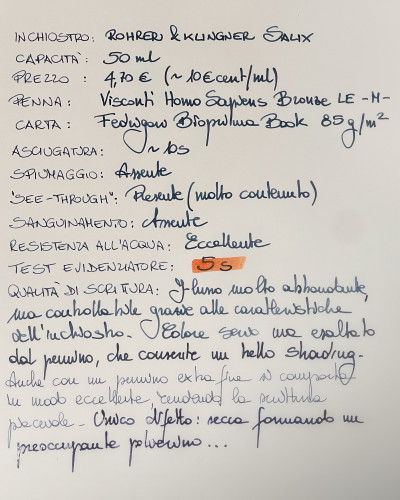 INCHIOSTRO: ROHRER & KLINGNER SALIX
CAPACITÀ: 50 ml
PREZZO: 4,70 € (~10€cent/ml)
PENNA: Visconti Homo Sapiens Bronze LE -M-
CARTA: Fedrigoni Bioprima Book 85g/m²
ASCIUGATURA: ~10s
SPIUMAGGIO: Assente
"SEE-THROUGH": Presente (molto contenuto)
SANGUINAMENTO: Assente
RESISTENZA ALL'ACQUA: Eccellente
TEST EVIDENZIATORE: 5s
QUALITÀ DI SCRITTURA: Flusso molto abbondante,
ma controllabile grazie alle caratteristiche
dell'inchiostro. Colore serio ma esaltato
dal pennino, che consente un bello shading.
Anche con un pennino extra fine si comporta
in modo eccellente, rendendo la scrittura
piacevole. Unico difetto: secca formando un
preoccupante polverino...